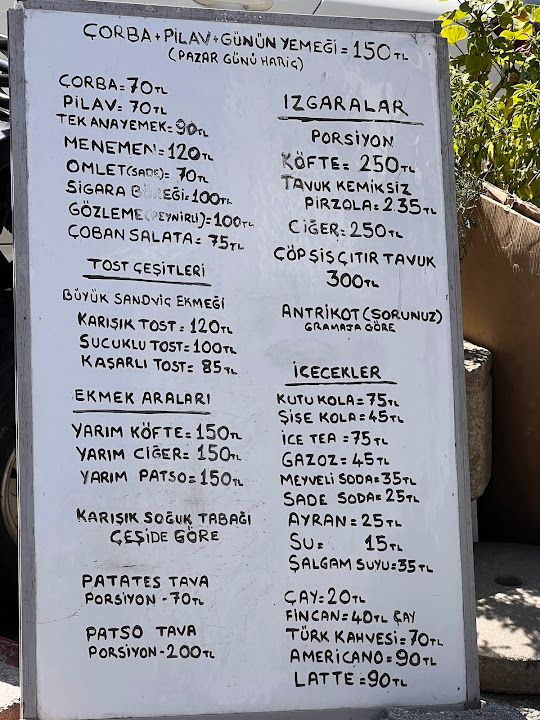 ÇORBA+PİLAV+GÜNÜN YEMEĞİ=150TL
(PAZAR GÜNÜ HARİÇ)
ÇORBA=70TL
PİLAV=70TL
TEK ANAYEMEK=90TL
MENEMEN=120TL
OMLET(SADE)=70TL
SİGARA BÖREĞİ:100TL
GÖZLEME(PEYNİRLİ)=100TL
ÇOBAN SALATA=75TL
TOST ÇEŞİTLERİ
BÜYÜK SANDVİÇ EKMEĞİ
KARIŞIK TOST=120TL
SUCUKLU TOST=100TL
KAŞARLI TOST= 85TL
EKMEK ARALARI
YARIM KÖFTE=150TL
YARIM CİĞER=150TL
YARIM PATSO=150TL
KARIŞIK SOĞUK TABAĞI
ÇEŞİDE GÖRE
PATATES TAVA
PORSİYON-70TL
PATSO TAVA
PORSİYON-200TL
IZGARALAR
PORSİYON
KÖFTE= 250TL
TAVUK KEMİKSİZ
PİRZOLA=2.35TL
CİĞER=250TL
ÇÖP ŞİŞ ÇITIR TAVUK
300TL
ANTRİKOT(SORUNUZ)
GRAMAJA GÖRE
İÇECEKLER
KUTU KOLA=75TL
ŞİŞE KOLA=45TL
İCE TEA=75TL
GAZOZ=45TL
MEYVELİ SODA=35TL
SADE SODA=25TL
AYRAN=25TL
SU= 15TL
ŞALGAM SUYU=35TL
ÇAY=20TL
FİNCAN=40TL ÇAY
TÜRK KAHVESİ=70TL
AMERICANO=90TL
LATTE=90TL